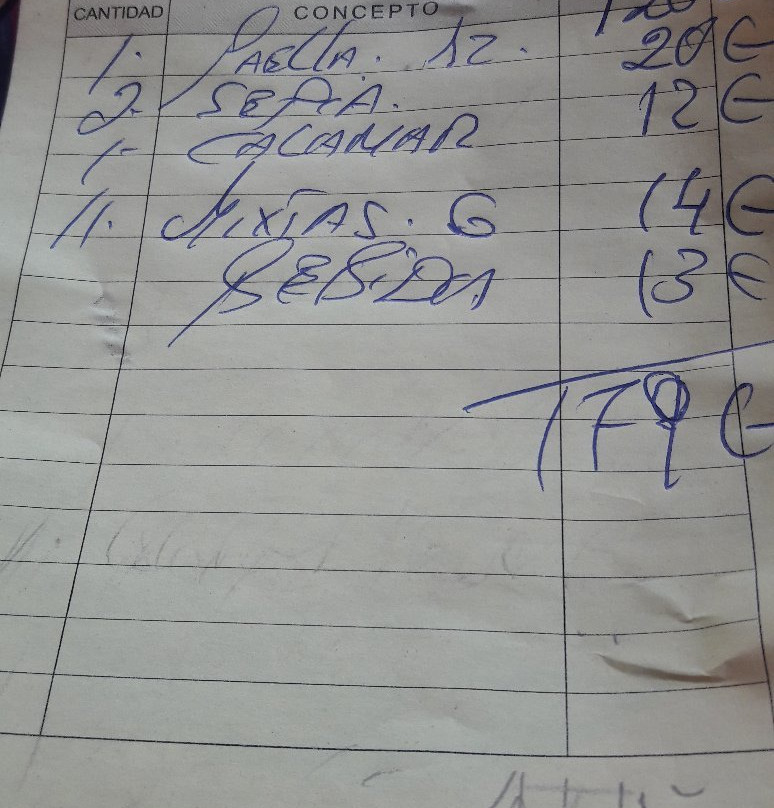 CANTIDAD CONCEPTO
1. PAELLA. 12. 120
2- SEPIA. 20€
1- CALAMAR 12€
11. MIXTAS. G 14€
BEBIDA 13€
179€